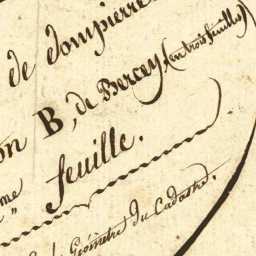 de dompierre
on B, de Bercey (en trois feuilles)
me feuille.
Géomètre du Cadastre.